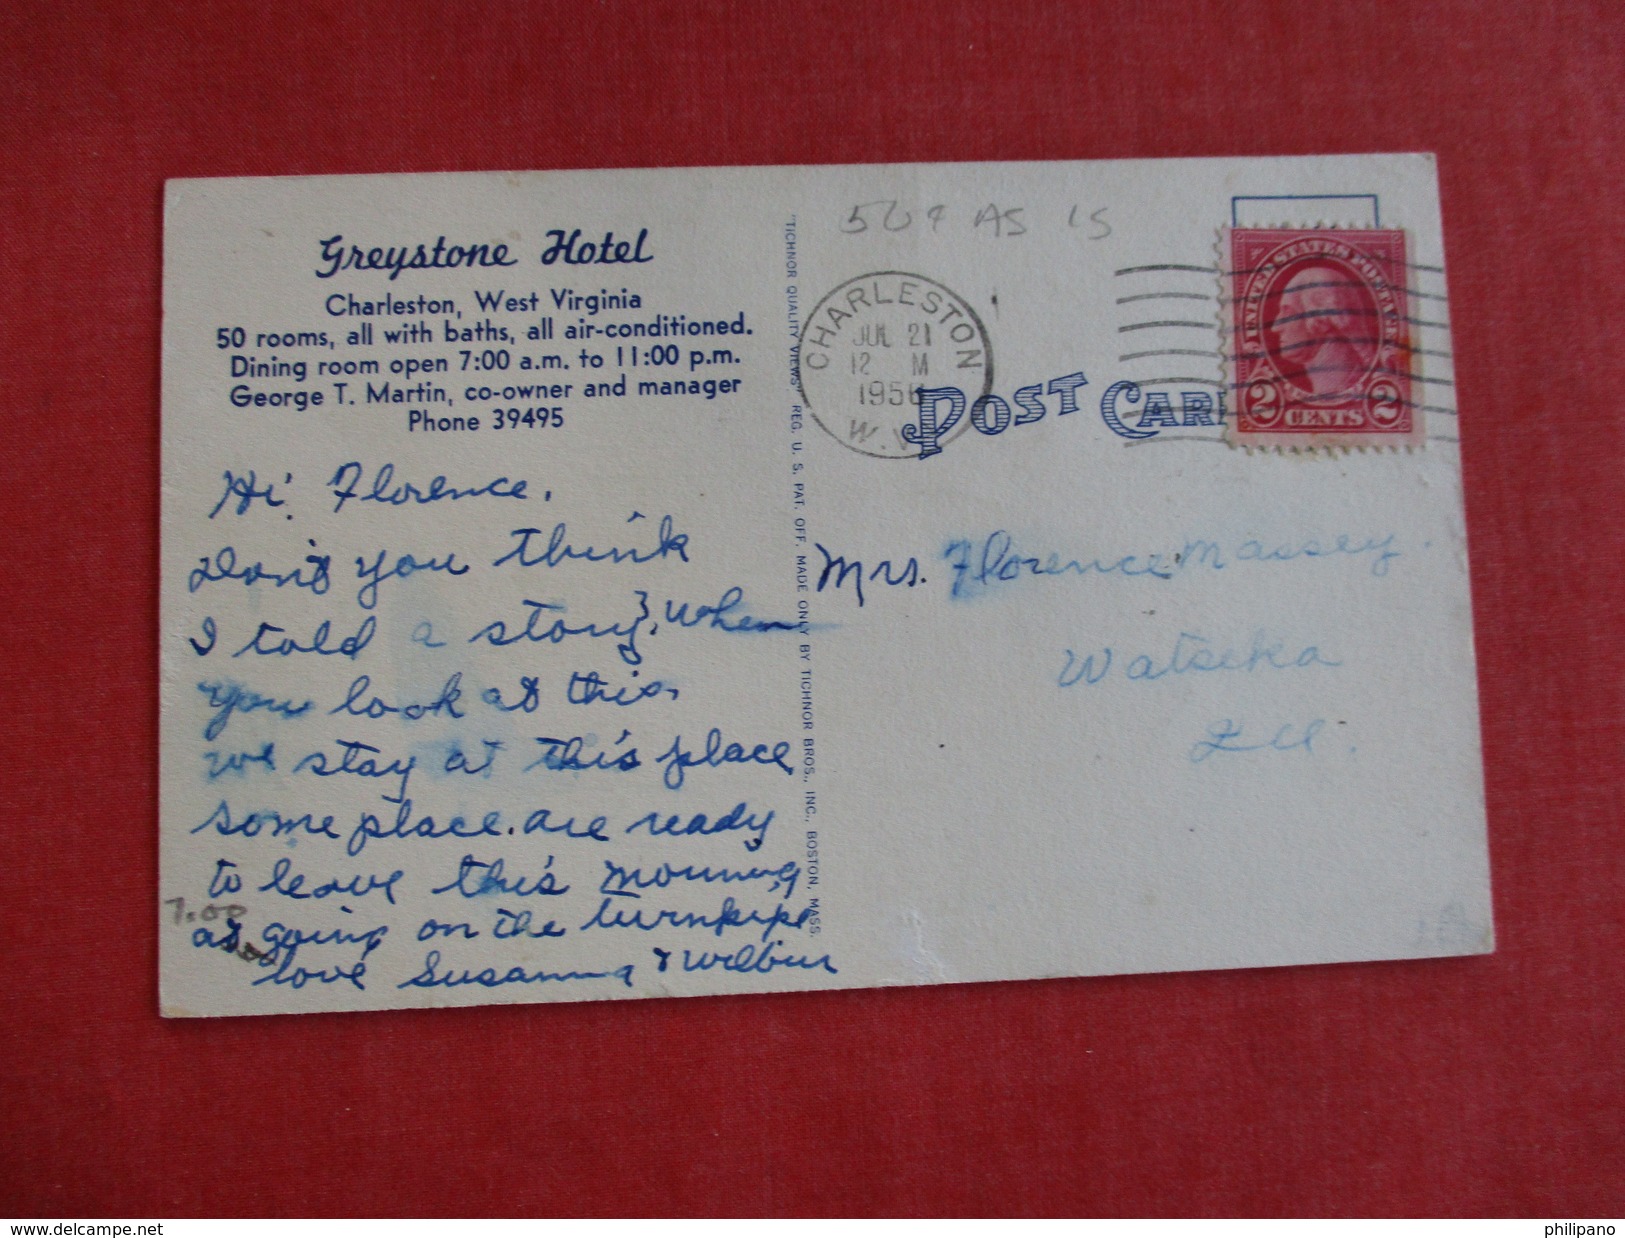 Greystone Hotel
Charleston, West Virginia
50 rooms, all with baths, all air-conditioned.
Dining room open 7:00 a.m. to 11:00 p.m.
George T. Martin, co-owner and manager
Phone 39495
Hi! Florence,
Don't you think
I told a story, when
you look at this,
we stay at this place
some place. are ready
to leave this morning
7.00
as going on the turnpipe
love Susanna & Wilbur
"TICHNOR QUALITY VIEWS" REG. U. S. PAT. OFF. MADE ONLY BY TICHNOR BROS., INC., BOSTON, MASS.
50¢ AS IS
CHARLESTON
JUL 21
12 M
1956
W. V
POST CAR
UNITED STATES POSTAGE
2 CENTS 2
Mrs. Florence Massey.
Watseka
Ill.
philipano
delcampe.net